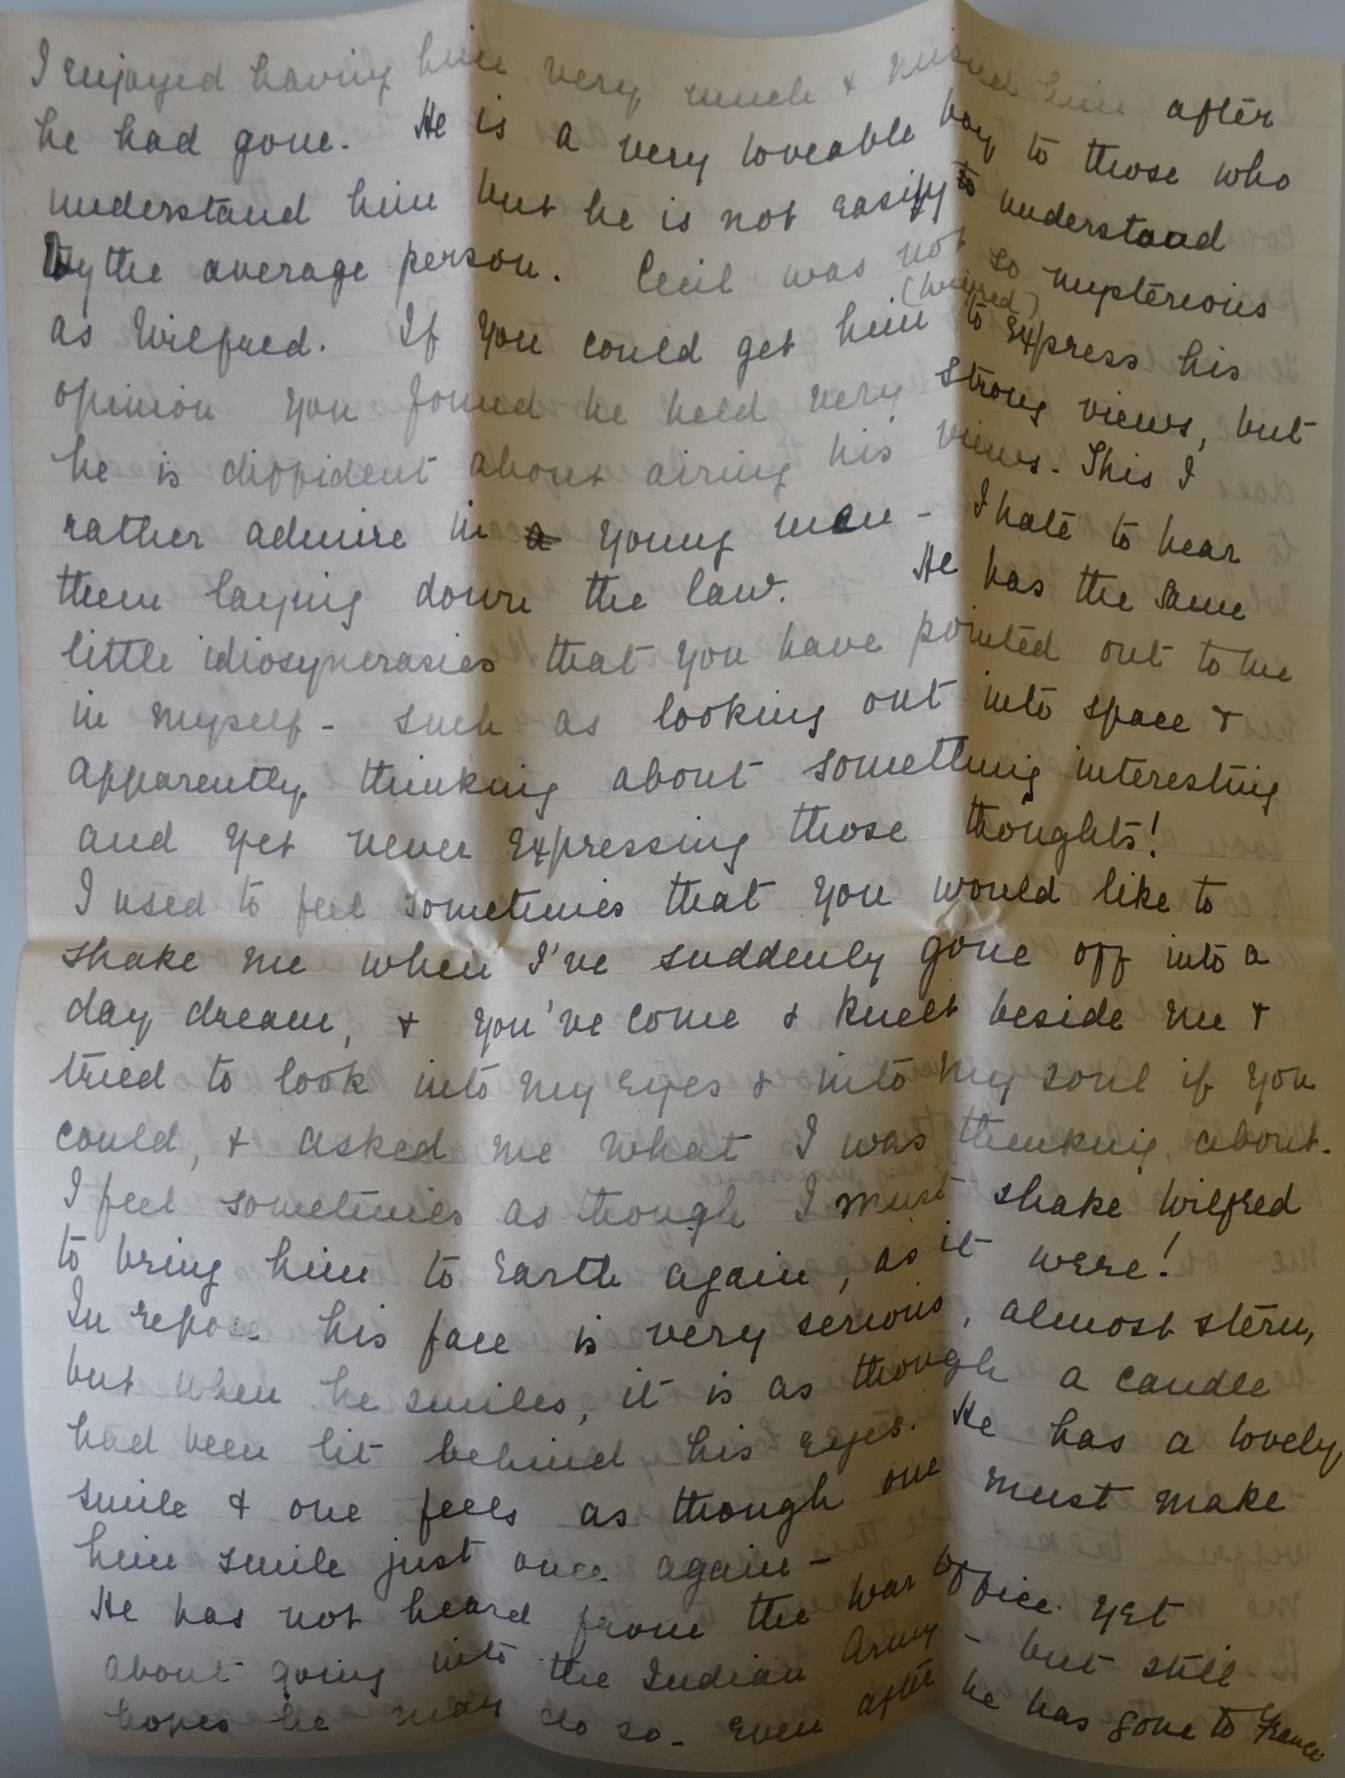 I enjoyed having him very much & missed him after
he had gone. He is a very loveable boy to those who
understand him but he is not easily to understand
by the average person. Cecil was not so mysterious
as Wilfred. If you could get him (Wilfred) to express his
opinion you found he held very strong views, but
he is diffident about airing his views. This I
rather admire in a young men - I hate to hear
them laying down the law. He has the same
little idiosyncrasies that you have pointed out to me
in myself - such as looking out into space &
apparently thinking about something interesting
and yet never expressing those thoughts!
I used to feel sometimes that you would like to
shake me when I've suddenly gone off into a
day dream, & you've come & knelt beside me &
tried to look into my eyes & into my soul if you
could, & asked me what I was thinking about.
I feel sometimes as though I must shake Wilfred
to bring him to Earth again, as it were!
In repose his face is very serious, almost stern,
but when he smiles, it is as though a candle
had been lit behind his eyes. He has a lovely
smile & one feels as though one must make
him smile just once again -
He has not heard from the War Office yet
about going into the Indian Army - but still
hopes he may do so. Even after he has gone to France